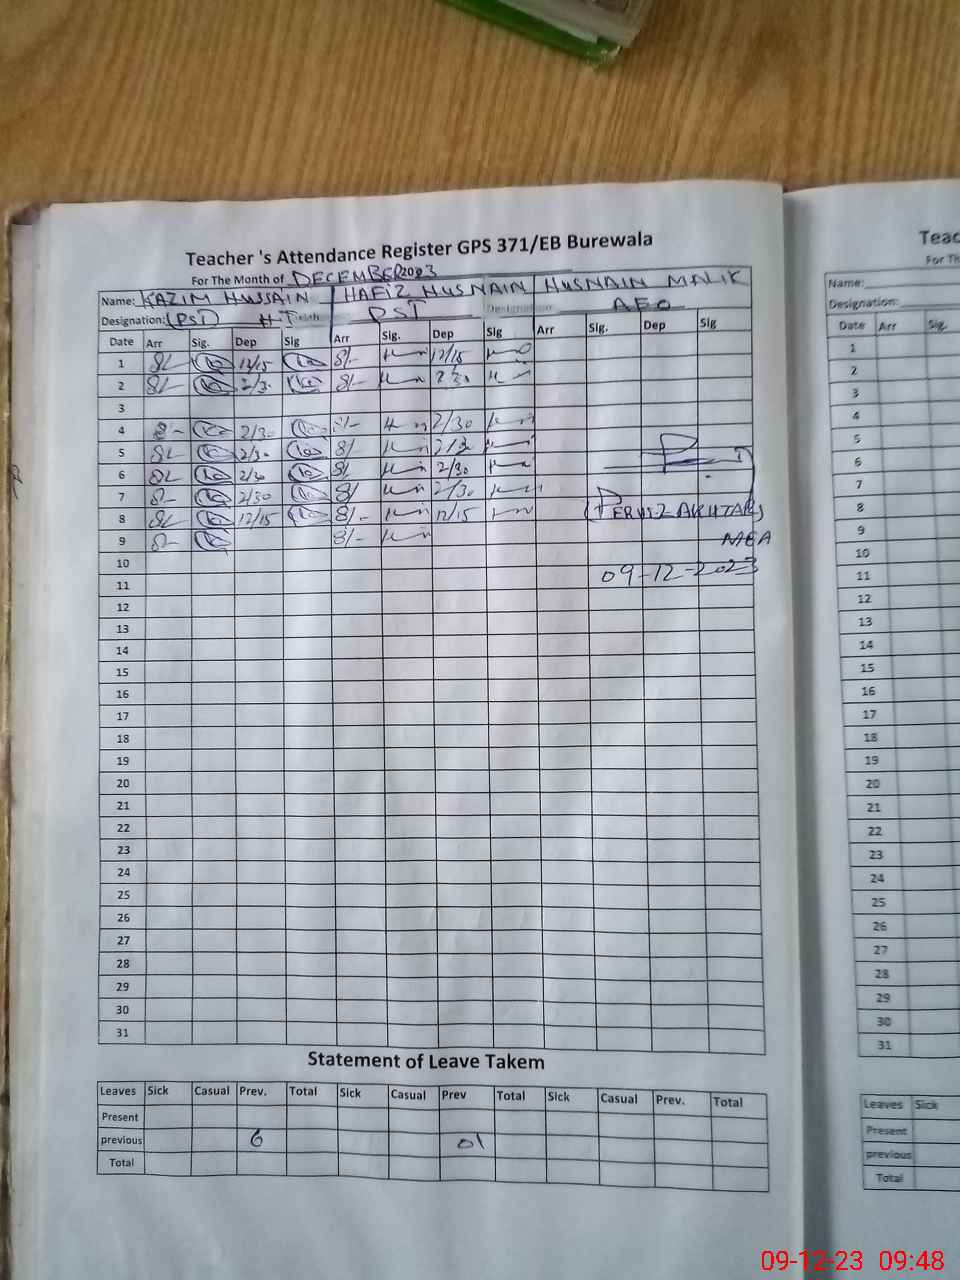 Teacher 's Attendance Register GPS 371/EB Burewala
For The Month of DECEMBER 2023
Name: KAZIM HUSSAIN HAFIZ HUSNAIN HUSNAIN MALIK
Designation: (PST) HT PST Designation: AEO
Date Arr Sig. Dep Sig Arr Sig. Dep Sig Arr Sig. Dep Sig
1 12/15 8/- 12/15
2 2/30 8/- 2/30
3
4 2/30 8/- 2/30
5 2/30 8/- 2/30
6 2/30 8/- 2/30
7 2/30 8/- 2/30
8 12/15 8/- 12/15 PERVEZ AKHTAR
9 8/- MEA
10
11 09-12-2023
12
13
14
15
16
17
18
19
20
21
22
23
24
25
26
27
28
29
30
31
Statement of Leave Takem
Leaves Sick Casual Prev. Total Sick Casual Prev Total Sick Casual Prev. Total
Present
previous 6 01
Total
Teac
For Th
Name:
Designation:
Date Arr Sig.
1
2
3
4
5
6
7
8
9
10
11
12
13
14
15
16
17
18
19
20
21
22
23
24
25
26
27
28
29
30
31
Leaves Sick
Present
previous
Total
09-12-23 09:48